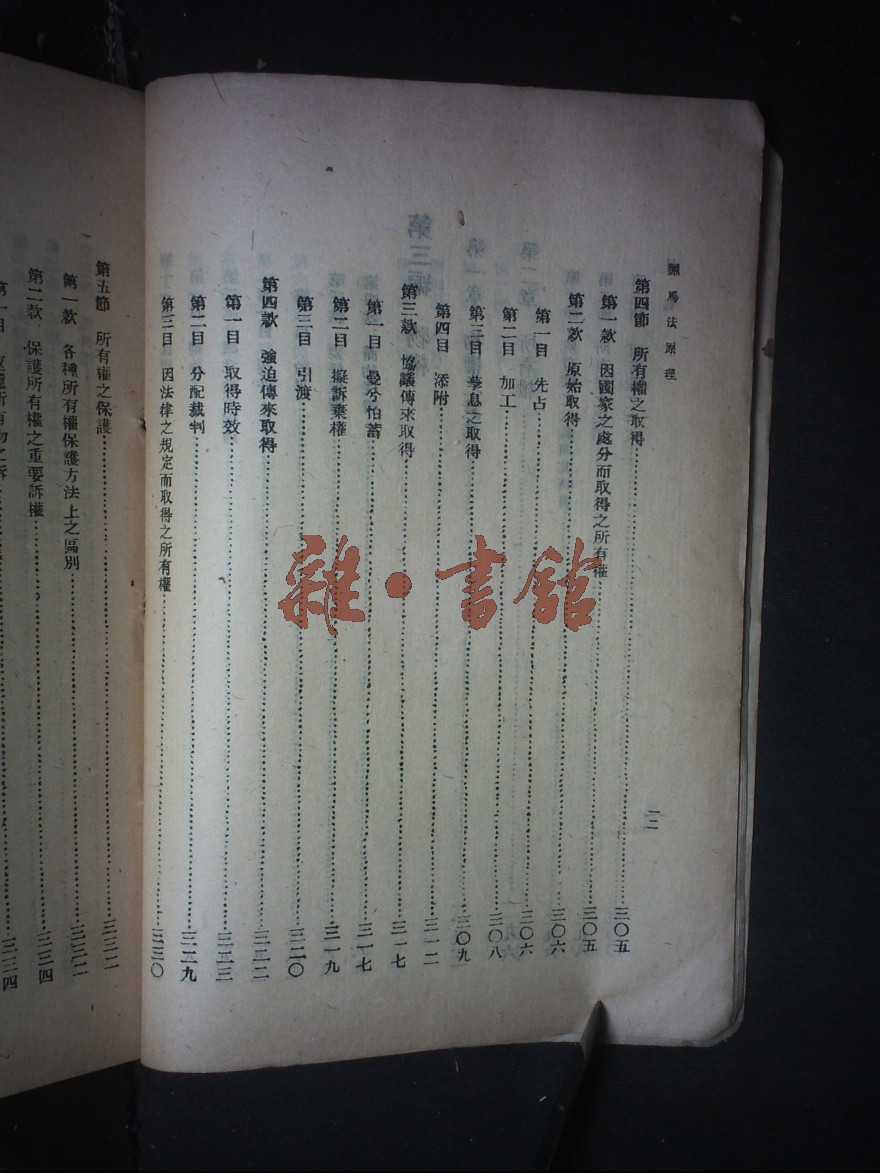 羅馬法原理
一二
第四節 所有權之取得……三〇五
第一款 因國家之處分而取得之所有權……三〇五
第二款 原始取得……三〇六
第一目 先占……三〇六
第二目 加工……三〇八
第三目 孳息之取得……三〇九
第四目 添附……三一二
第三款 協議傳來取得……三一七
第一目 曼兮怕蓄……三一七
第二目 擬訴棄權……三一九
第三目 引渡……三二〇
第四款 強迫傳來取得……三二二
第一目 取得時效……三二三
第二目 分配裁判……三二九
第三目 因法律之規定而取得之所有權……三三〇
第五節 所有權之保護……三三二
第一款 各種所有權保護方法上之區別……三三二
第二款 保護所有權之重要訴權……三三四
第一目 所有物之訴……三三四
雜·書館